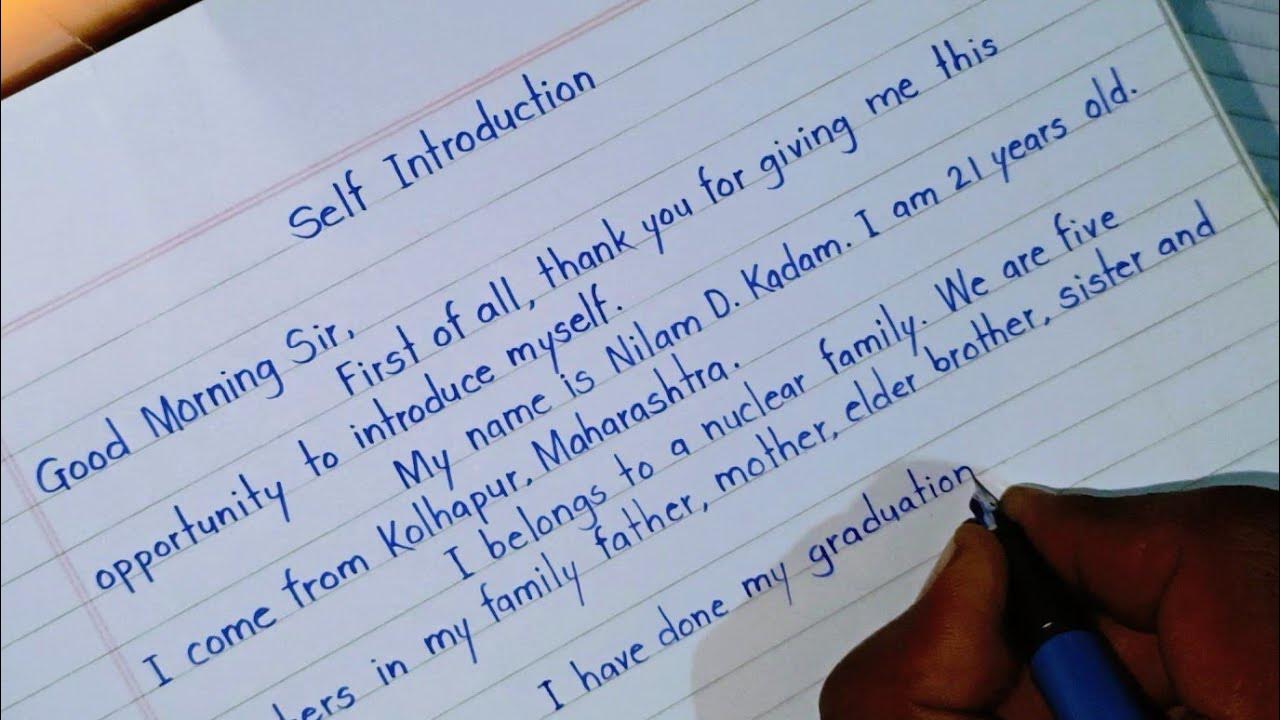 Self Introduction
Good Morning Sir,
First of all, thank you for giving me this
opportunity to introduce myself.
My name is Nilam D. Kadam. I am 21 years old.
I come from Kolhapur, Maharashtra.
I belongs to a nuclear family. We are five
bers in my family father, mother, elder brother, sister and
I have done my graduation